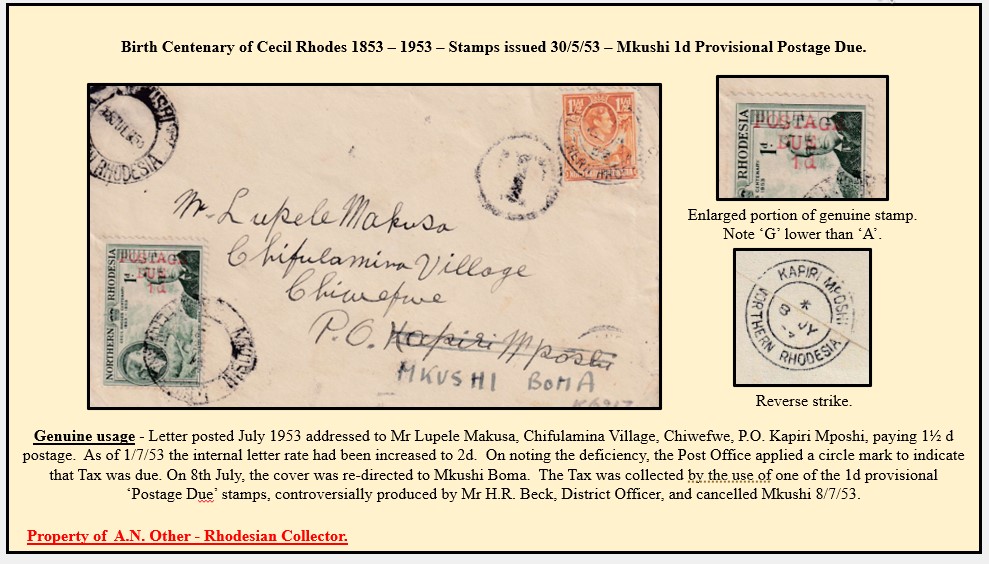 Birth Centenary of Cecil Rhodes 1853 – 1953 – Stamps issued 30/5/53 – Mkushi 1d Provisional Postage Due.
USHI
N. RHODESIA
1½ 1½
Mr Lupele Makusa
Chifulamina Village
Chiwefwe
P.O. Kapiri Mposhi
MKUSHI BOMA
NORTHERN RHODESIA
1d
POSTAGE
DUE
1d
MKUSHI
RHODESIA
1d
POSTAGE
DUE
1d
Enlarged portion of genuine stamp.
Note ‘G’ lower than ‘A’.
KAPIRI MPOSHI
*
8 JY
NORTHERN RHODESIA
Reverse strike.
Genuine usage - Letter posted July 1953 addressed to Mr Lupele Makusa, Chifulamina Village, Chiwefwe, P.O. Kapiri Mposhi, paying 1½ d
postage. As of 1/7/53 the internal letter rate had been increased to 2d. On noting the deficiency, the Post Office applied a circle mark to indicate
that Tax was due. On 8th July, the cover was re-directed to Mkushi Boma. The Tax was collected by the use of one of the 1d provisional
‘Postage Due’ stamps, controversially produced by Mr H.R. Beck, District Officer, and cancelled Mkushi 8/7/53.
Property of A.N. Other - Rhodesian Collector.